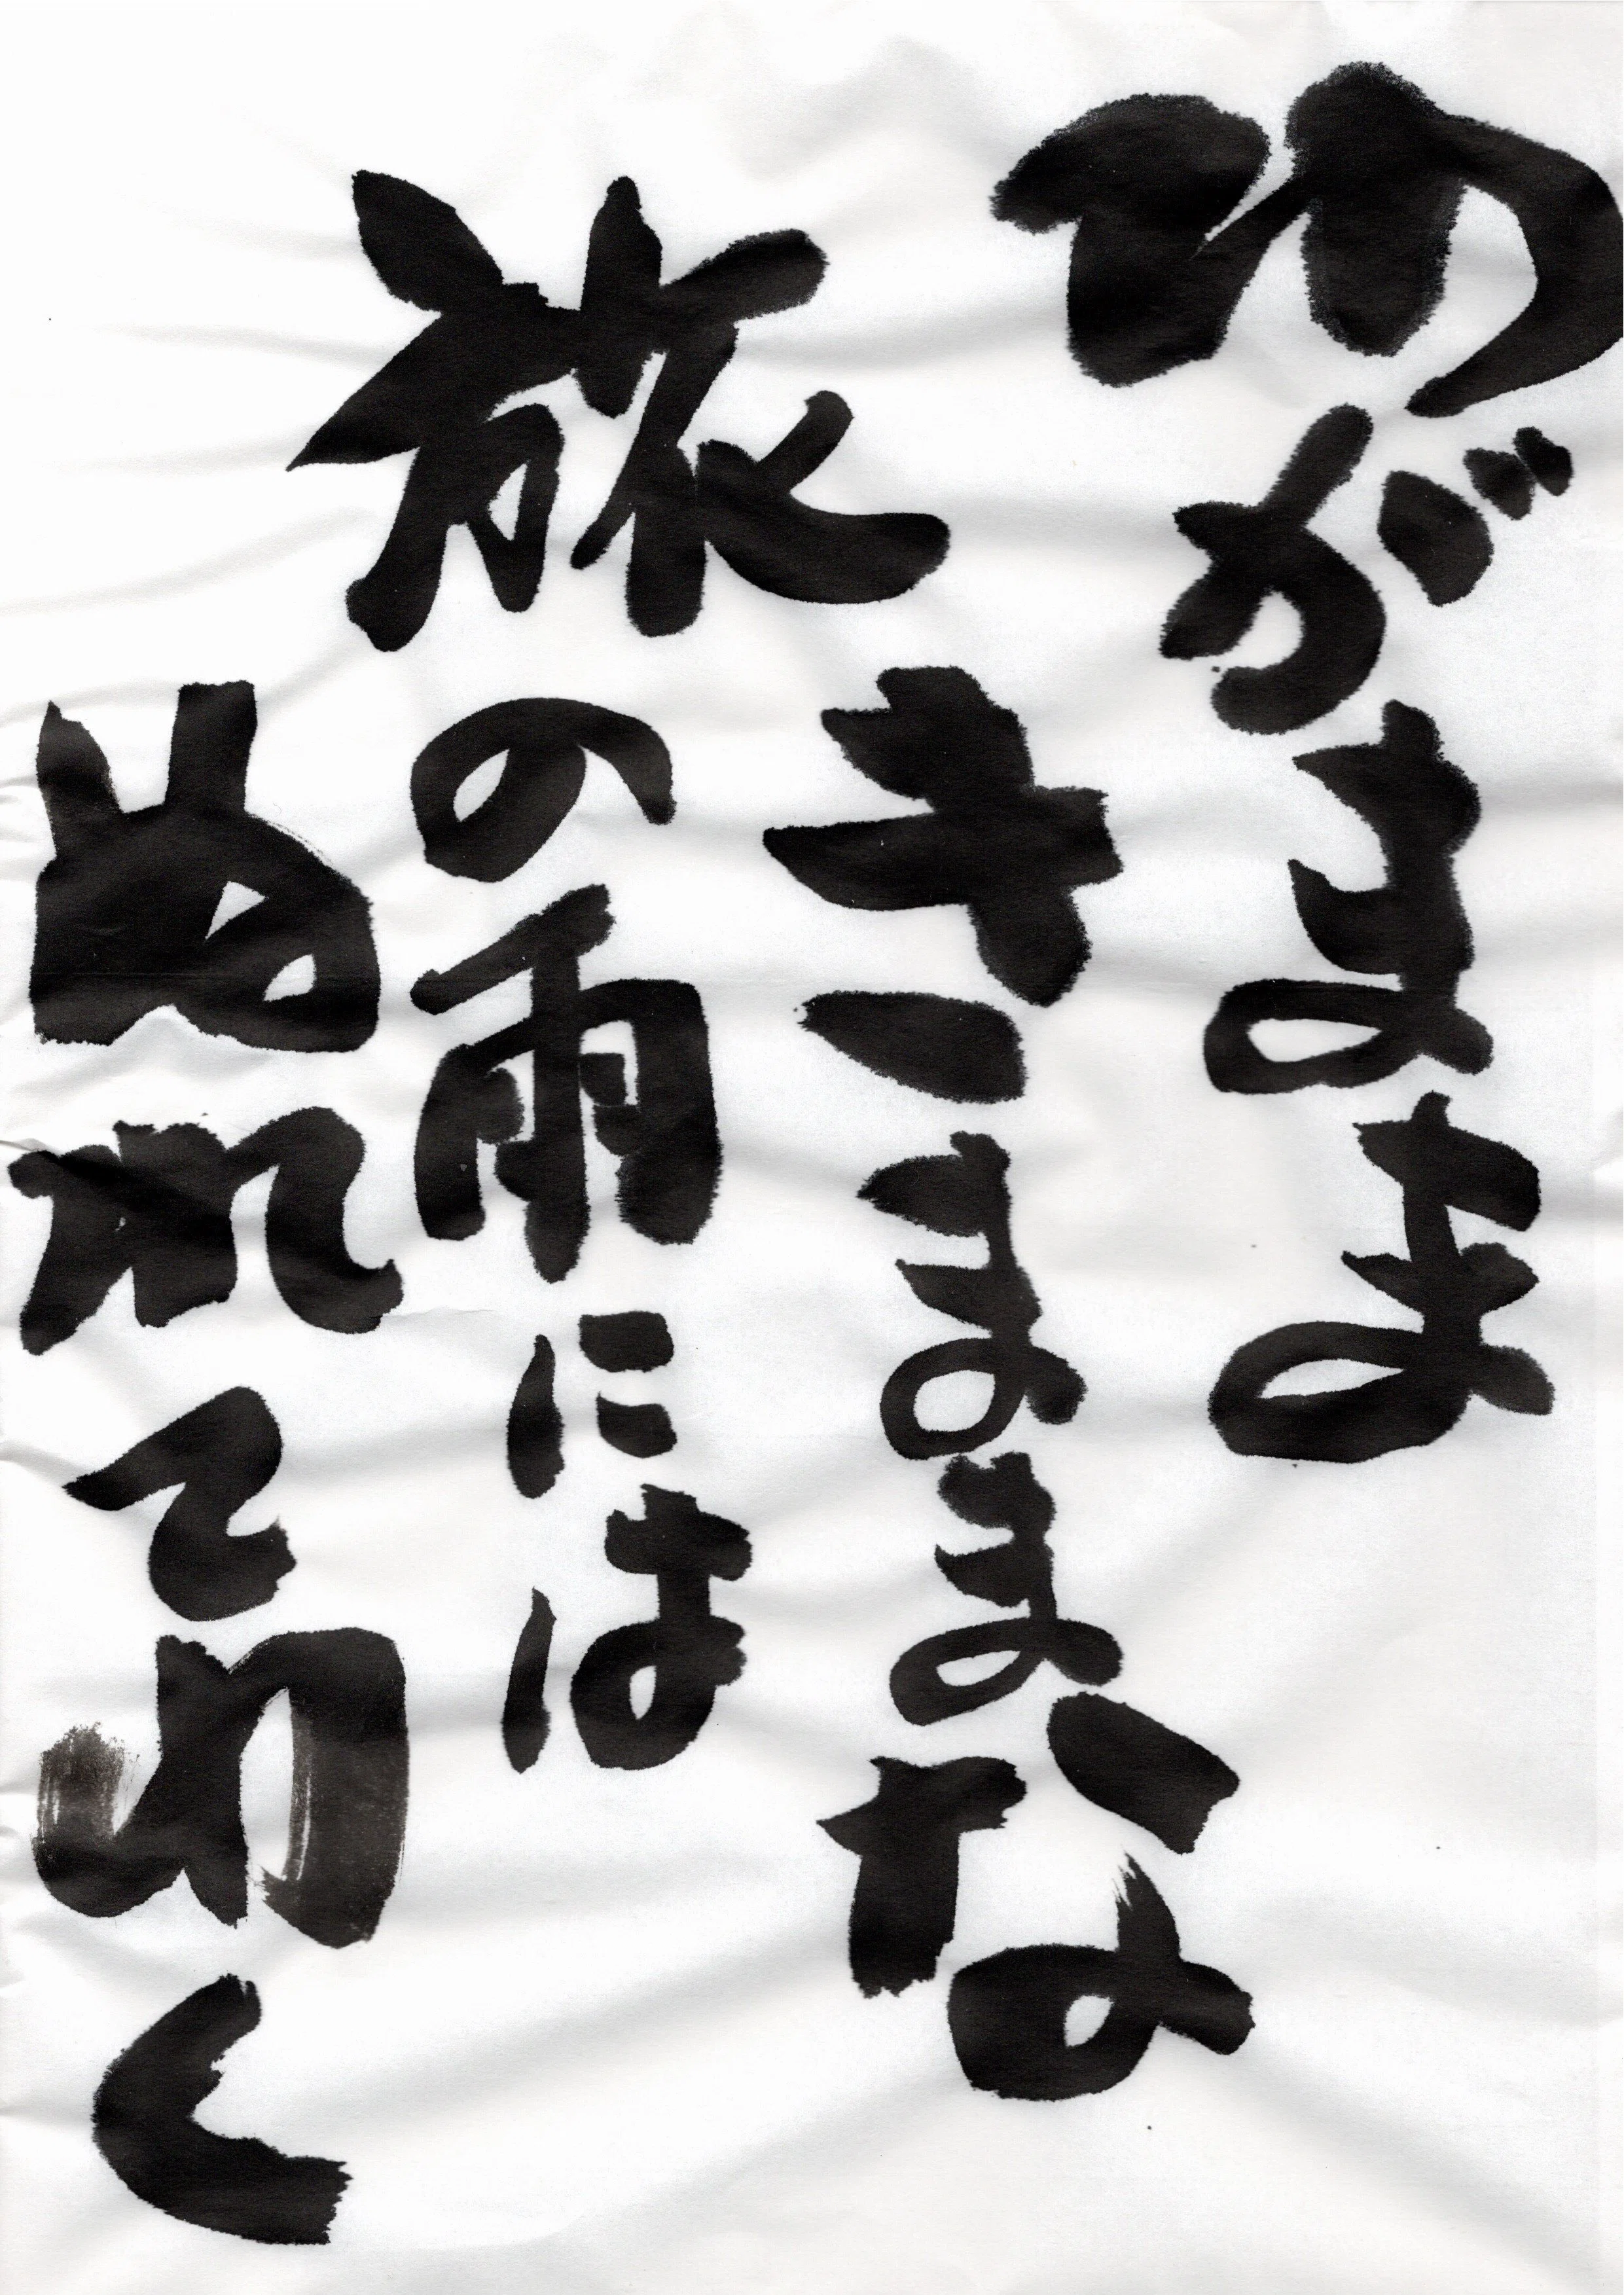 わがまま
きままな
旅の雨には
ぬれてゆく